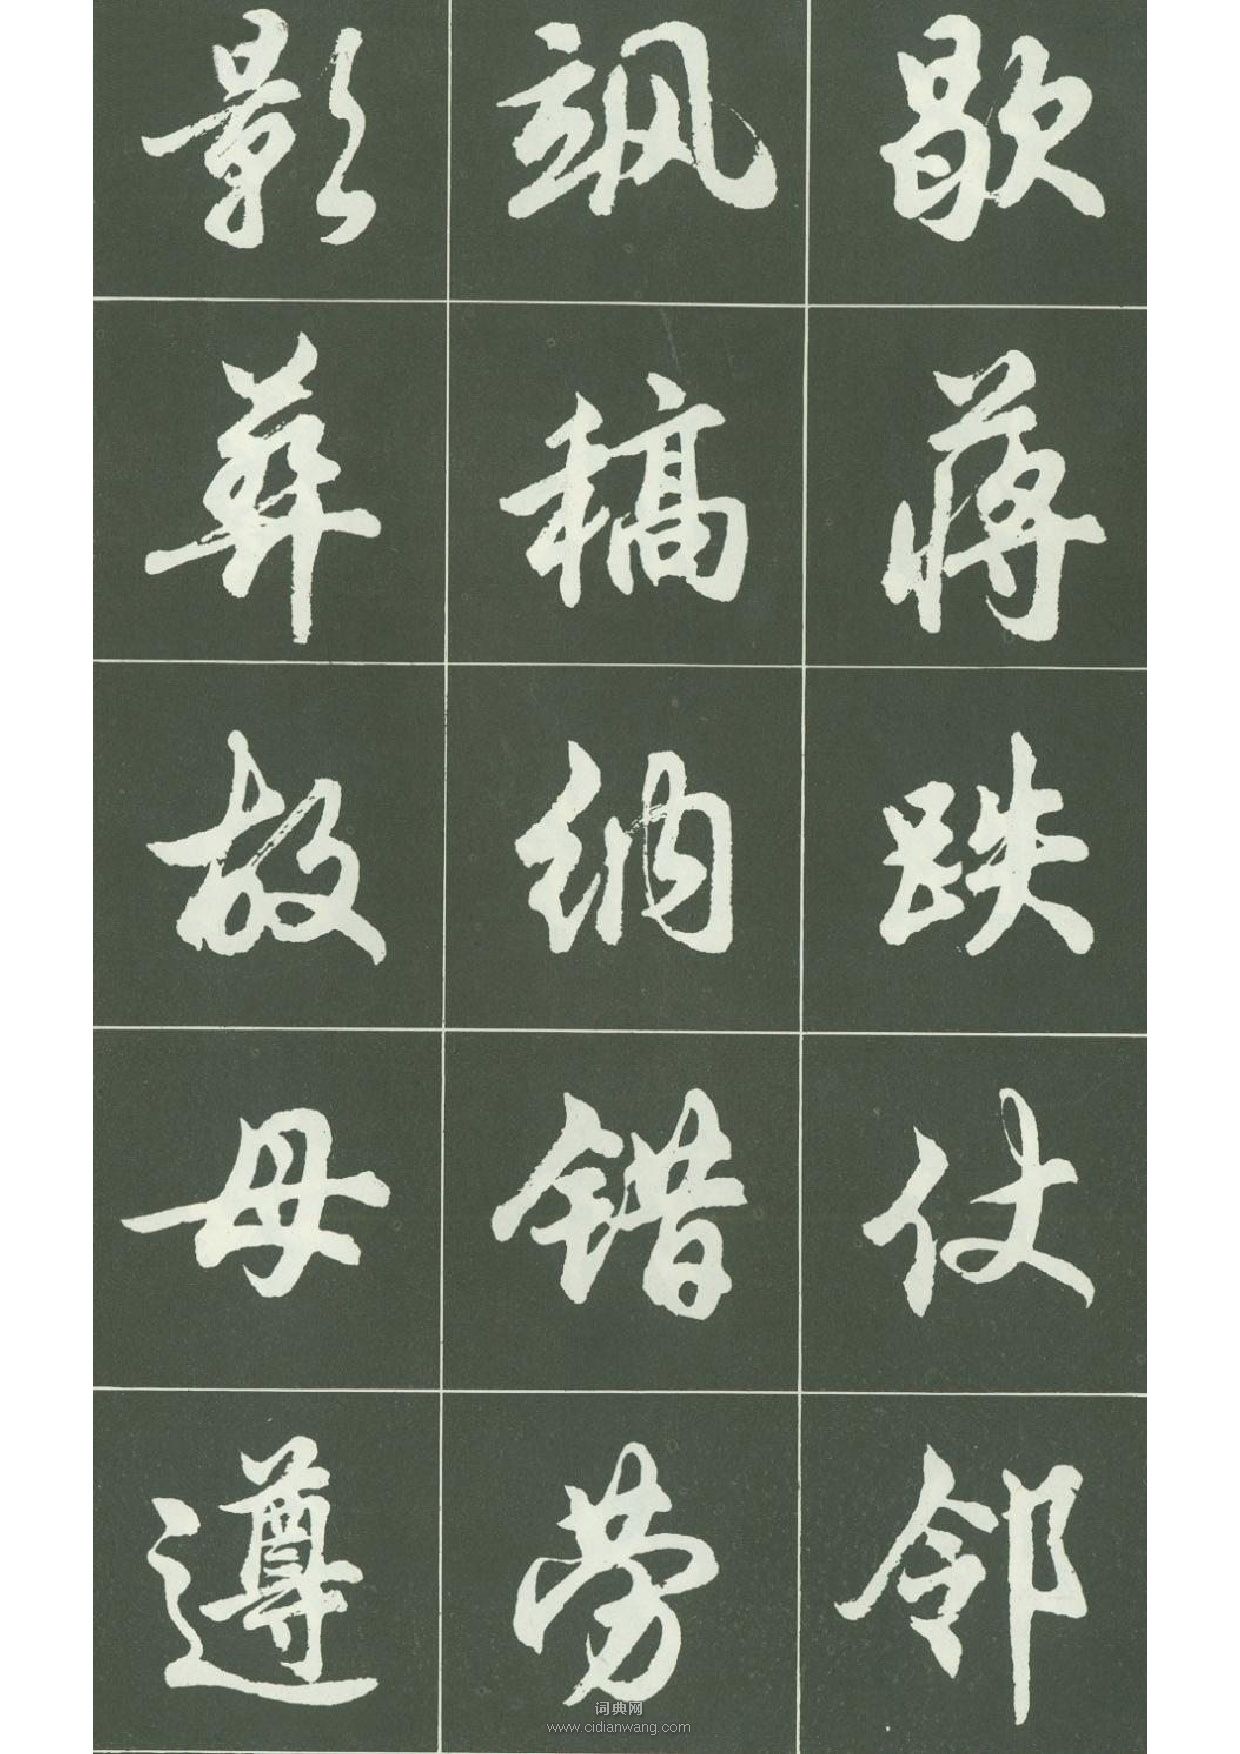 歇蒋跌仗邻
飒稿纳错劳
影葬故母遵
词典网
www.cidianwang.com